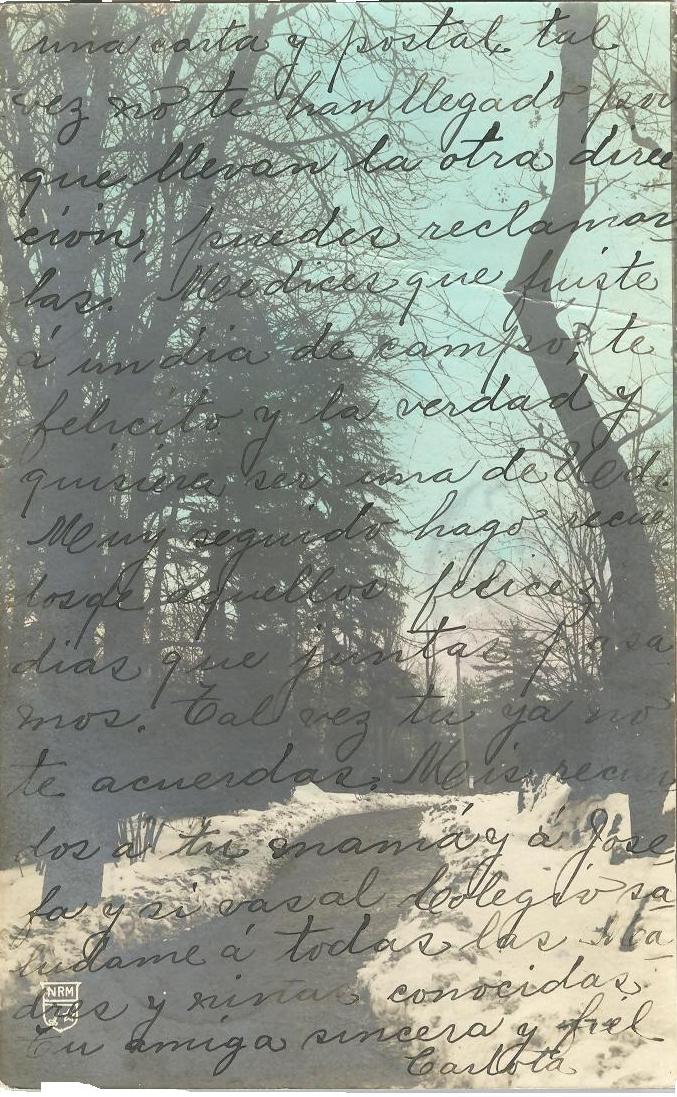 una carta y postal, tal
vez no te han llegado por
que llevan la otra direc
ción, puedes reclamar
las. Me dices que fuiste
á un dia de campo, te
felicito y la verdad y
quisiera ser una de Uds.
Muy seguido hago recuer
dos de aquellos felices
dias que juntas pasa
mos. Tal vez tu ya no
te acuerdas. Mis recuer
dos a tu mamá y á Jose
fa y si vas al Colegio sa
ludame á todas las Ma
dres y niñas conocidas.
Tu amiga sincera y fiel
Carlota
NRM